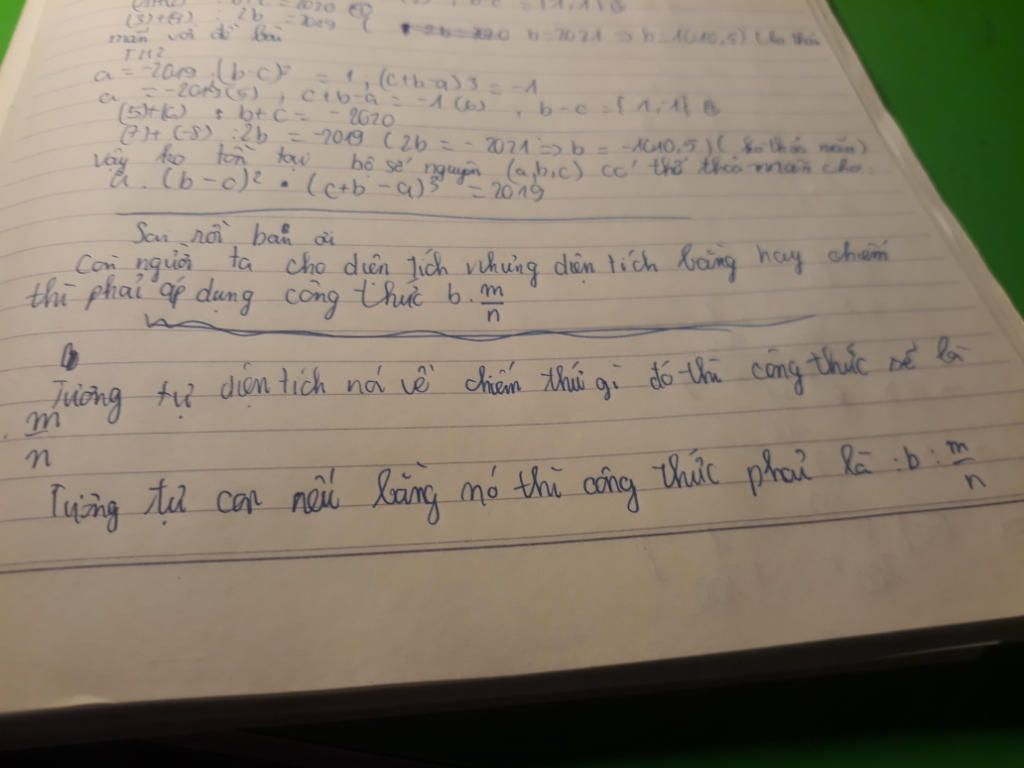 (3)+(4) : 2b = 2019
mãn với đề bài 2b = 2020 b = 2021 => b = 1010,5)
TH2
a = -2019, (b-c)² = 1, (c+b-a)³ = -1
a = -2019(5), c+b-a = -1(6), b-c = {1,-1}
(5)+(6) : b+c = -2020
(7)+(-8) : 2b = -2019 (2b = -2021 => b = -1010,5) ( ko thỏa mãn)
Vậy ko tồn tại bộ số nguyên (a,b,c) có thể thỏa mãn cho:
a. (b-c)² . (c+b-a)³ = 2019
Sai rồi bạn ơi
Con người ta cho diện tích nhưng diện tích bằng hay chiếm
thì phải áp dụng công thức b. m/n
Tương tự diện tích nó về chiếm thứ gì đó thì công thức sẽ là
. m/n
Tương tự con nếu bằng nó thì công thức phải là :b : m/n